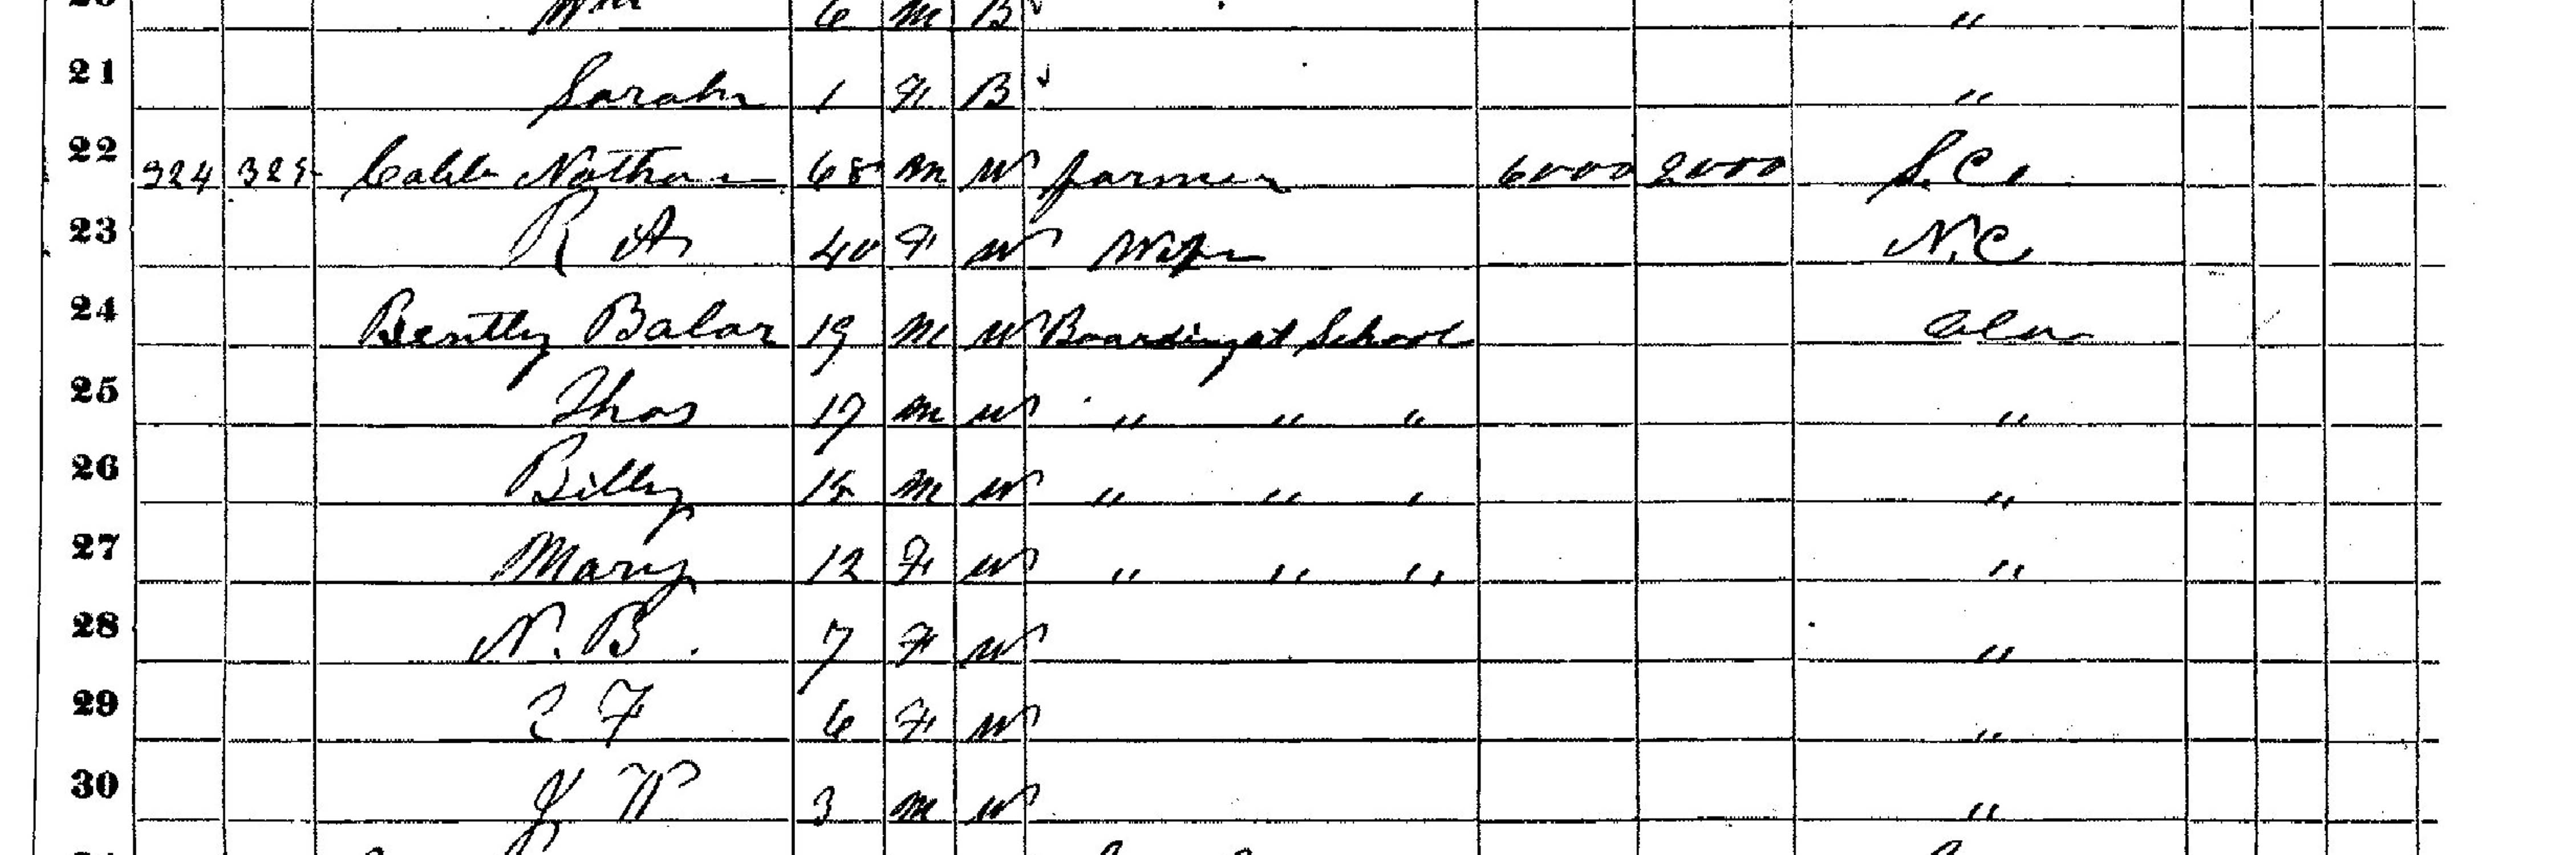 Wm 6 M B "
21 Sarah 1 F B "
22 324 325 Nathan 65 M W farmer 6000 2000 S.C.
23 R A 40 F W Wife N.C
24 Bently 19 M W Boarding at School Ala
25 Thos 17 M W " " " "
26 Billy 15 M W " " " "
27 Mary 12 F W " " " "
28 N. B. 7 F W "
29 F 6 F W "
30 J W 3 M W "